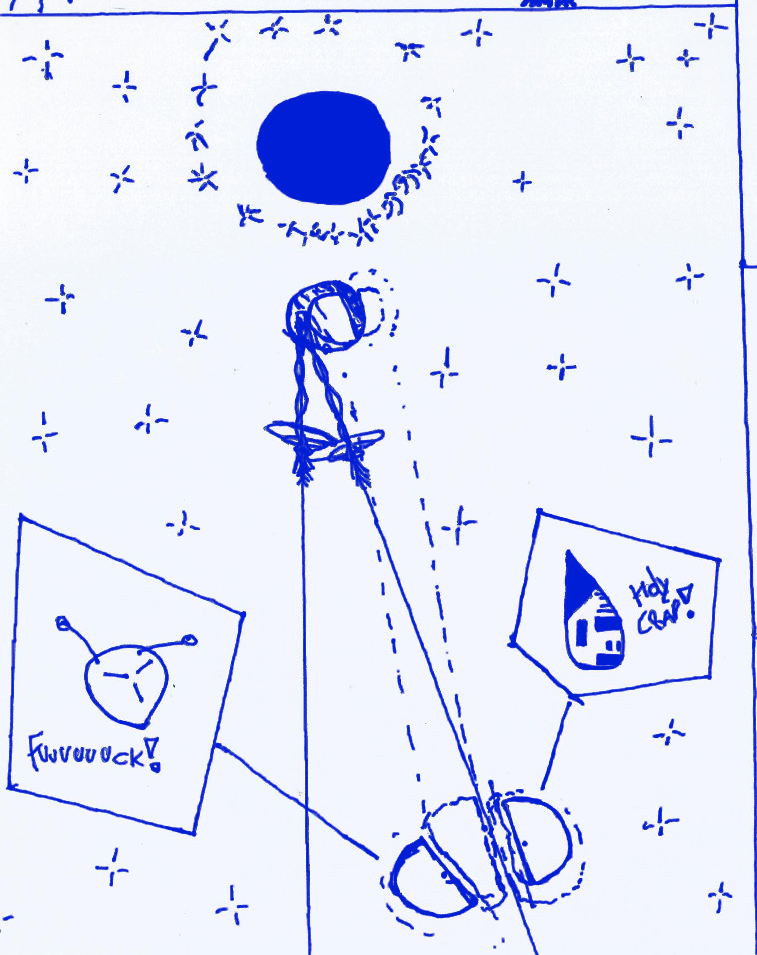 Fuuuuuuck!
Holy
CRAP!